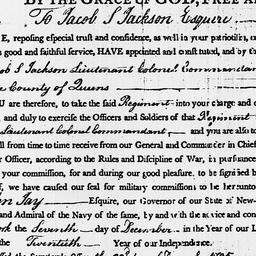 BY THE GRACE OF GOD, FREE A
To Jacob S Jackson Esquire
E, reposing especial trust and confidence, as well in your patriotism, co
s good and faithful service, HAVE appointed and constituted, and by th
ob S Jackson Lieutenant Colonel Commandan
e County of Queens
U are therefore, to take the said Regiment into your charge and c
and duty to exercise the Officers and Soldiers of that Regiment
Lieutenant Colonel Commandant and you are also to
ll from time to time receive from our General and Commander in Chief
r Officer, according to the Rules and Discipline of War, in pursuance
your commission, for and during our good pleasure, to be signified b
f, we have caused our seal for military commissions to be hereunto
n Jay Esquire, our Governor of our State of New-
and Admiral of the Navy of the same, by and with the advice and con
ork the Seventh day of December in the Year of our L
the Twentieth Year of our Independence.